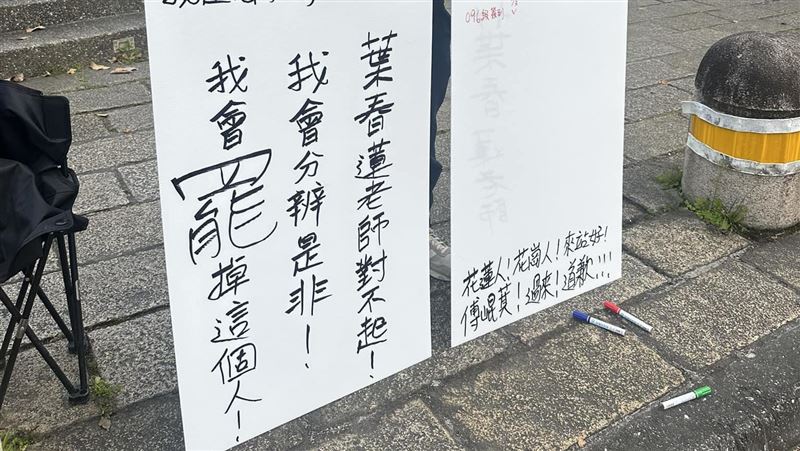 葉春蓮老師對不起！
我會分辨是非！
我會罷掉這個人！
葉春蓮老師
花蓮人！花崗人！來站好！
傅崐萁！過來！道歉！！！